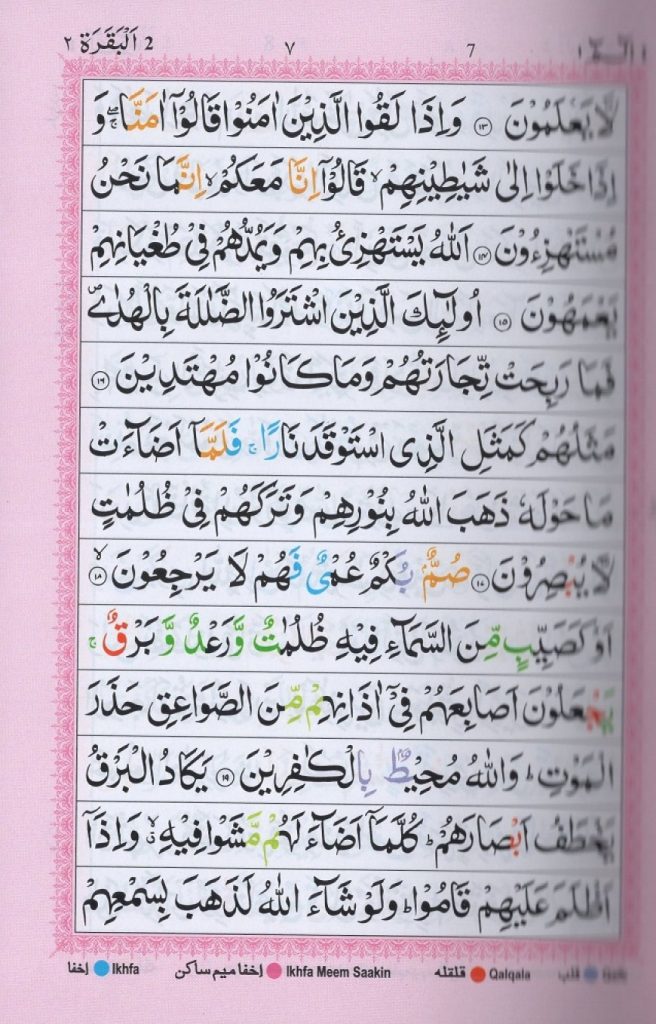 2 اَلْبَقَرَة ٢ ٧ 7 الٓـمّٓ ١
لَّا يَعْلَمُوْنَ ﴿١٣﴾ وَاِذَا لَقُوا الَّذِيْنَ اٰمَنُوْا قَالُوْٓا اٰمَنَّا ۖۚ وَ
اِذَا خَلَوْا اِلٰى شَيٰطِيْنِهِمْ ۙ قَالُوْٓا اِنَّا مَعَكُمْ ۙ اِنَّمَا نَحْنُ
مُسْتَهْزِءُوْنَ ﴿١٤﴾ اَللّٰهُ يَسْتَهْزِئُ بِهِمْ وَيَمُدُّهُمْ فِيْ طُغْيَانِهِمْ
يَعْمَهُوْنَ ﴿١٥﴾ اُولٰٓئِكَ الَّذِيْنَ اشْتَرَوُا الضَّلٰلَةَ بِالْهُدٰى ۪
فَمَا رَبِحَتْ تِّجَارَتُهُمْ وَمَا كَانُوْا مُهْتَدِيْنَ ﴿١٦﴾
مَثَلُهُمْ كَمَثَلِ الَّذِى اسْتَوْقَدَ نَارًا ۚ فَلَمَّآ اَضَآءَتْ
مَا حَوْلَهٗ ذَهَبَ اللّٰهُ بِنُوْرِهِمْ وَتَرَكَهُمْ فِيْ ظُلُمٰتٍ
لَّا يُبْصِرُوْنَ ﴿١٧﴾ صُمٌّۢ بُكْمٌ عُمْيٌ فَهُمْ لَا يَرْجِعُوْنَ ﴿١٨﴾ ۙ
اَوْ كَصَيِّبٍ مِّنَ السَّمَآءِ فِيْهِ ظُلُمٰتٌ وَّرَعْدٌ وَّبَرْقٌ ۚ
يَجْعَلُوْنَ اَصَابِعَهُمْ فِيْٓ اٰذَانِهِمْ مِّنَ الصَّوَاعِقِ حَذَرَ
الْمَوْتِ ؕ وَاللّٰهُ مُحِيْطٌۢ بِالْكٰفِرِيْنَ ﴿١٩﴾ يَكَادُ الْبَرْقُ
يَخْطَفُ اَبْصَارَهُمْ ؕ كُلَّمَآ اَضَآءَ لَهُمْ مَّشَوْا فِيْهِ ۙ وَاِذَآ
اَظْلَمَ عَلَيْهِمْ قَامُوْا ؕ وَلَوْ شَآءَ اللّٰهُ لَذَهَبَ بِسَمْعِهِمْ
اخفا Ikhfa اخفا میم ساکن Ikhfa Meem Saakin قلقله Qalqala قلب